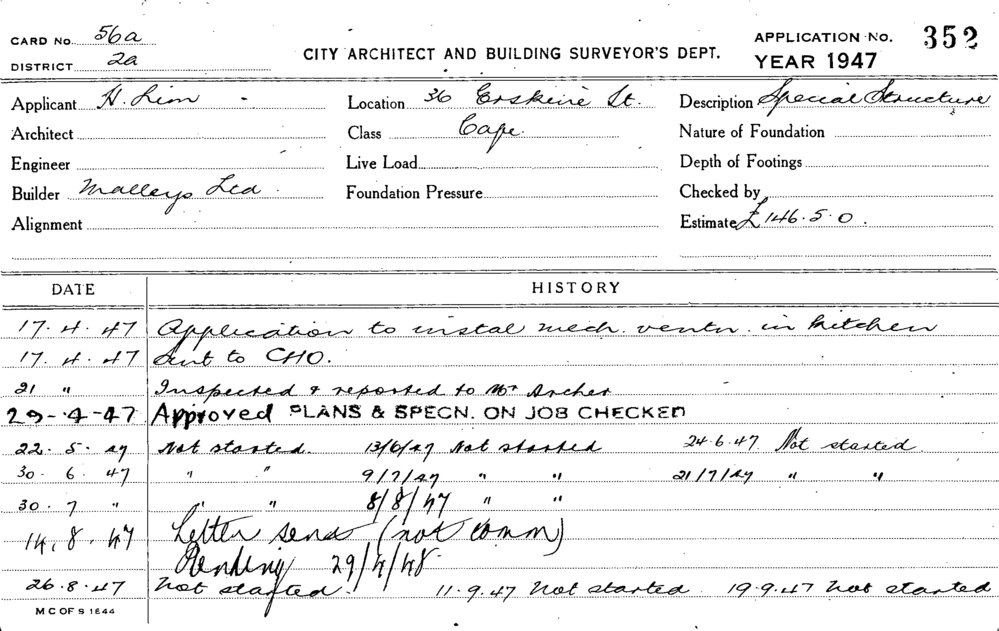 CARD No. 56a
DISTRICT 2a
CITY ARCHITECT AND BUILDING SURVEYOR'S DEPT.
APPLICATION No. 352
YEAR 1947
Applicant H. Lim Location 36 Erskine St. Description Special Structure
Architect Class Cafe Nature of Foundation
Engineer Live Load Depth of Footings
Builder Malleys Ltd. Foundation Pressure Checked by
Alignment Estimate £146.5.0.
DATE HISTORY
17.4.47 Application to instal mech. ventn. in kitchen
17.4.47 Sent to CHO.
21 " Inspected & reported to Mr Archer
29-4-47 Approved PLANS & SPECN. ON JOB CHECKED
22.5.47 Not started. 13/6/47 Not started 24.6.47 Not started
30.6.47 " " 9/7/47 " " 21/7/47 " "
30.7 " " " 8/8/47 " "
14.8.47 Letter send (not comm)
Pending 29/4/48
26.8.47 Not started. 11.9.47 Not started 19.9.47 Not started
M C OF S 1844